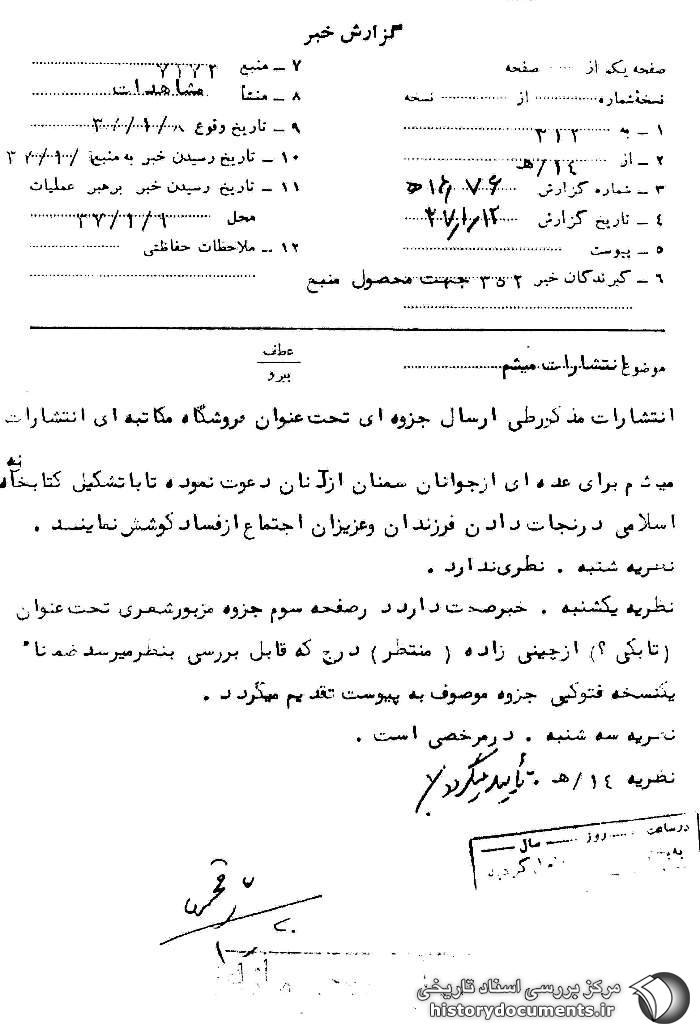 گزارش خبر
صفحه یک از ..... صفحه
نسخه شماره ............ از ............ نسخه
۱ ـ به ۳۱۲
۲ ـ از ۱۴/هـ
۳ ـ شماره گزارش
۴ ـ تاریخ گزارش
۵ ـ پیوست
۶ ـ گیرندگان خبر ۳۵۲ جهت محصول منبع
۷ ـ منبع ۷۱۷۲
۸ ـ منشأ مشاهدات
۹ ـ تاریخ وقوع
۱۰ ـ تاریخ رسیدن خبر به منبع
۱۱ ـ تاریخ رسیدن خبر برهبر عملیات
محل ۳۷/۱/۹
۱۲ ـ ملاحظات حفاظتی
موضوع انتشارات میثم
عطف
پیرو
انتشارات مذکور طی ارسال جزوه ای تحت عنوان فروشگاه مکاتبه ای انتشارات
میثم برای عده ای از جوانان سمنان از آنان دعوت نموده تا با تشکیل کتابخانه
اسلامی در نجات دادن فرزندان وعزیزان اجتماع از فساد کوشش نمایند .
نظریه شنبه . نظری ندارد .
نظریه یکشنبه . خبر صحت دارد در صفحه سوم جزوه مزبور شعری تحت عنوان
(تا بکی ؟) از چینی زاده ( منتظر ) درج که قابل بررسی بنظر میرسد ضمنا"
یکنسخه فتوکپی جزوه موصوف به پیوست تقدیم میگردد .
نظریه سه شنبه . در مرخصی است .
نظریه ۱۴/هـ . تأیید میگردد
در ساعت ..... روز ..... سال
مرکز بررسی اسناد تاریخی
historydocuments.ir